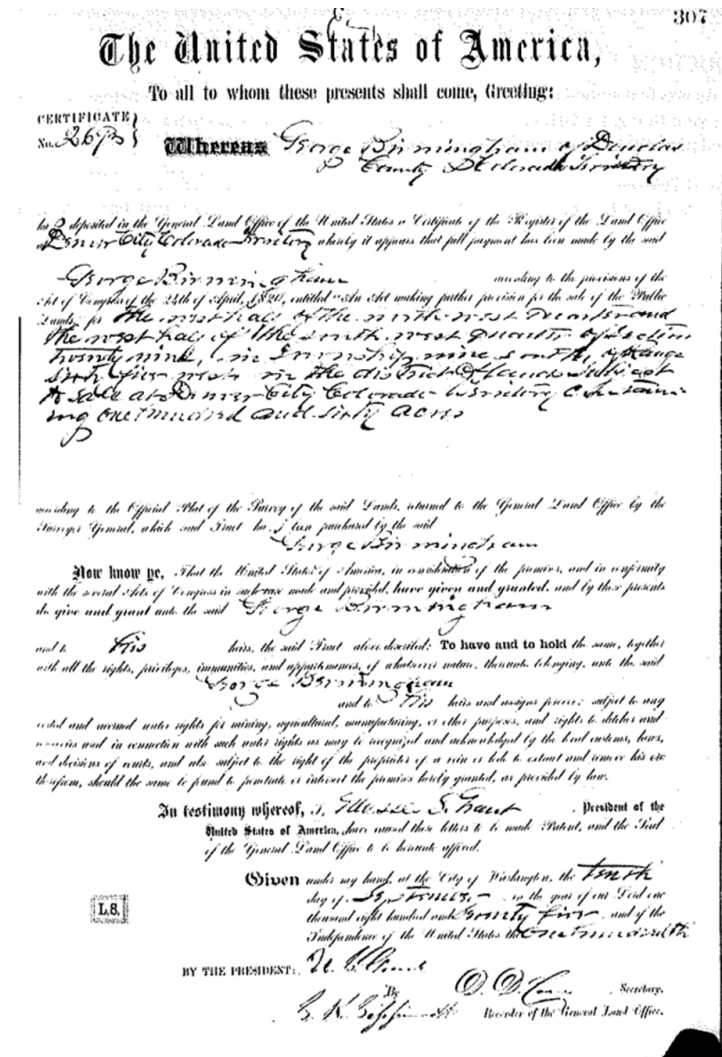 307
The United States of America,
To all to whom these presents shall come, Greeting:
CERTIFICATE
No.
Whereas George Birmingham of Douglas
County Colorado Territory
has deposited in the General Land Office of the United States a Certificate of the Register of the Land Office
at Denver City Colorado Territory whereby it appears that full payment has been made by the said
George Birmingham according to the provisions of the
Act of Congress of the 24th of April, 1820, entitled "An Act making further provision for the sale of the Public
Lands," for the west half of the north west quarter and
the west half of the south west quarter of section
twenty nine, in township nine south, of range
sixty five west in the district of lands subject
to sale at Denver City Colorado Territory contain-
ing one hundred and sixty acres
according to the Official Plat of the Survey of the said Lands, returned to the General Land Office by the
Surveyor General, which said Tract has been purchased by the said
George Birmingham
Now know ye, That the United States of America, in consideration of the premises, and in conformity
with the several Acts of Congress in such case made and provided, have given and granted, and by these presents
do give and grant unto the said George Birmingham
and to his heirs, the said Tract above described: To have and to hold the same, together
with all the rights, privileges, immunities, and appurtenances, of whatsoever nature, thereunto belonging, unto the said
George Birmingham
and to his heirs and assigns forever; subject to any
vested and accrued water rights for mining, agricultural, manufacturing, or other purposes, and rights to ditches and
reservoirs used in connection with such water rights as may be recognized and acknowledged by the local customs, laws,
and decisions of courts, and also subject to the right of the proprietor of a vein or lode to extract and remove his ore
therefrom, should the same be found to penetrate or intersect the premises hereby granted, as provided by law.
In testimony whereof, I, Ulysses S. Grant President of the
United States of America, have caused these letters to be made Patent, and the Seal
of the General Land Office to be hereunto affixed.
Given under my hand, at the City of Washington, the tenth
day of in the year of our Lord one
thousand eight hundred and seventy five and of the
Independence of the United States the one hundredth
L.S.
BY THE PRESIDENT: U. S. Grant
By Secretary.
Recorder of the General Land Office.